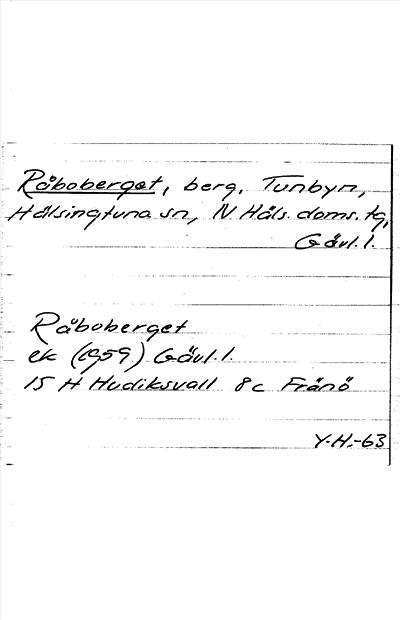 Råboberget, berg, Tunbyn,
Hälsingtuna sn, N Häls. doms. tg,
Gävl. l.
Råboberget
ek (1959) Gävl. l.
15 H Hudiksvall 8c Frånö
Y.H.-63